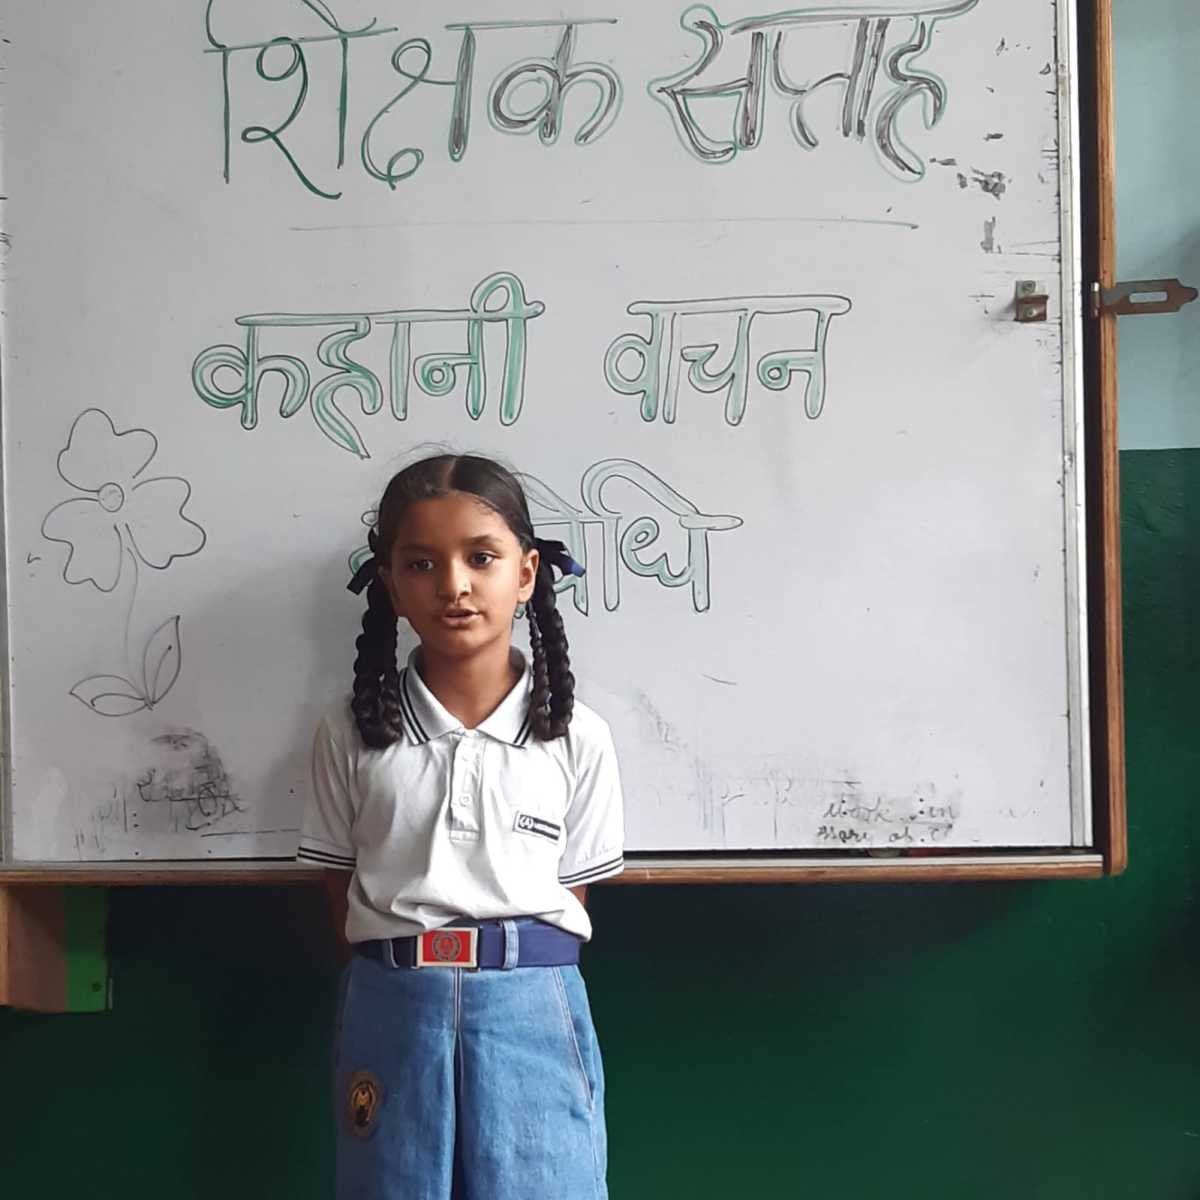 शिक्षक सप्ताह
कहानी वाचन